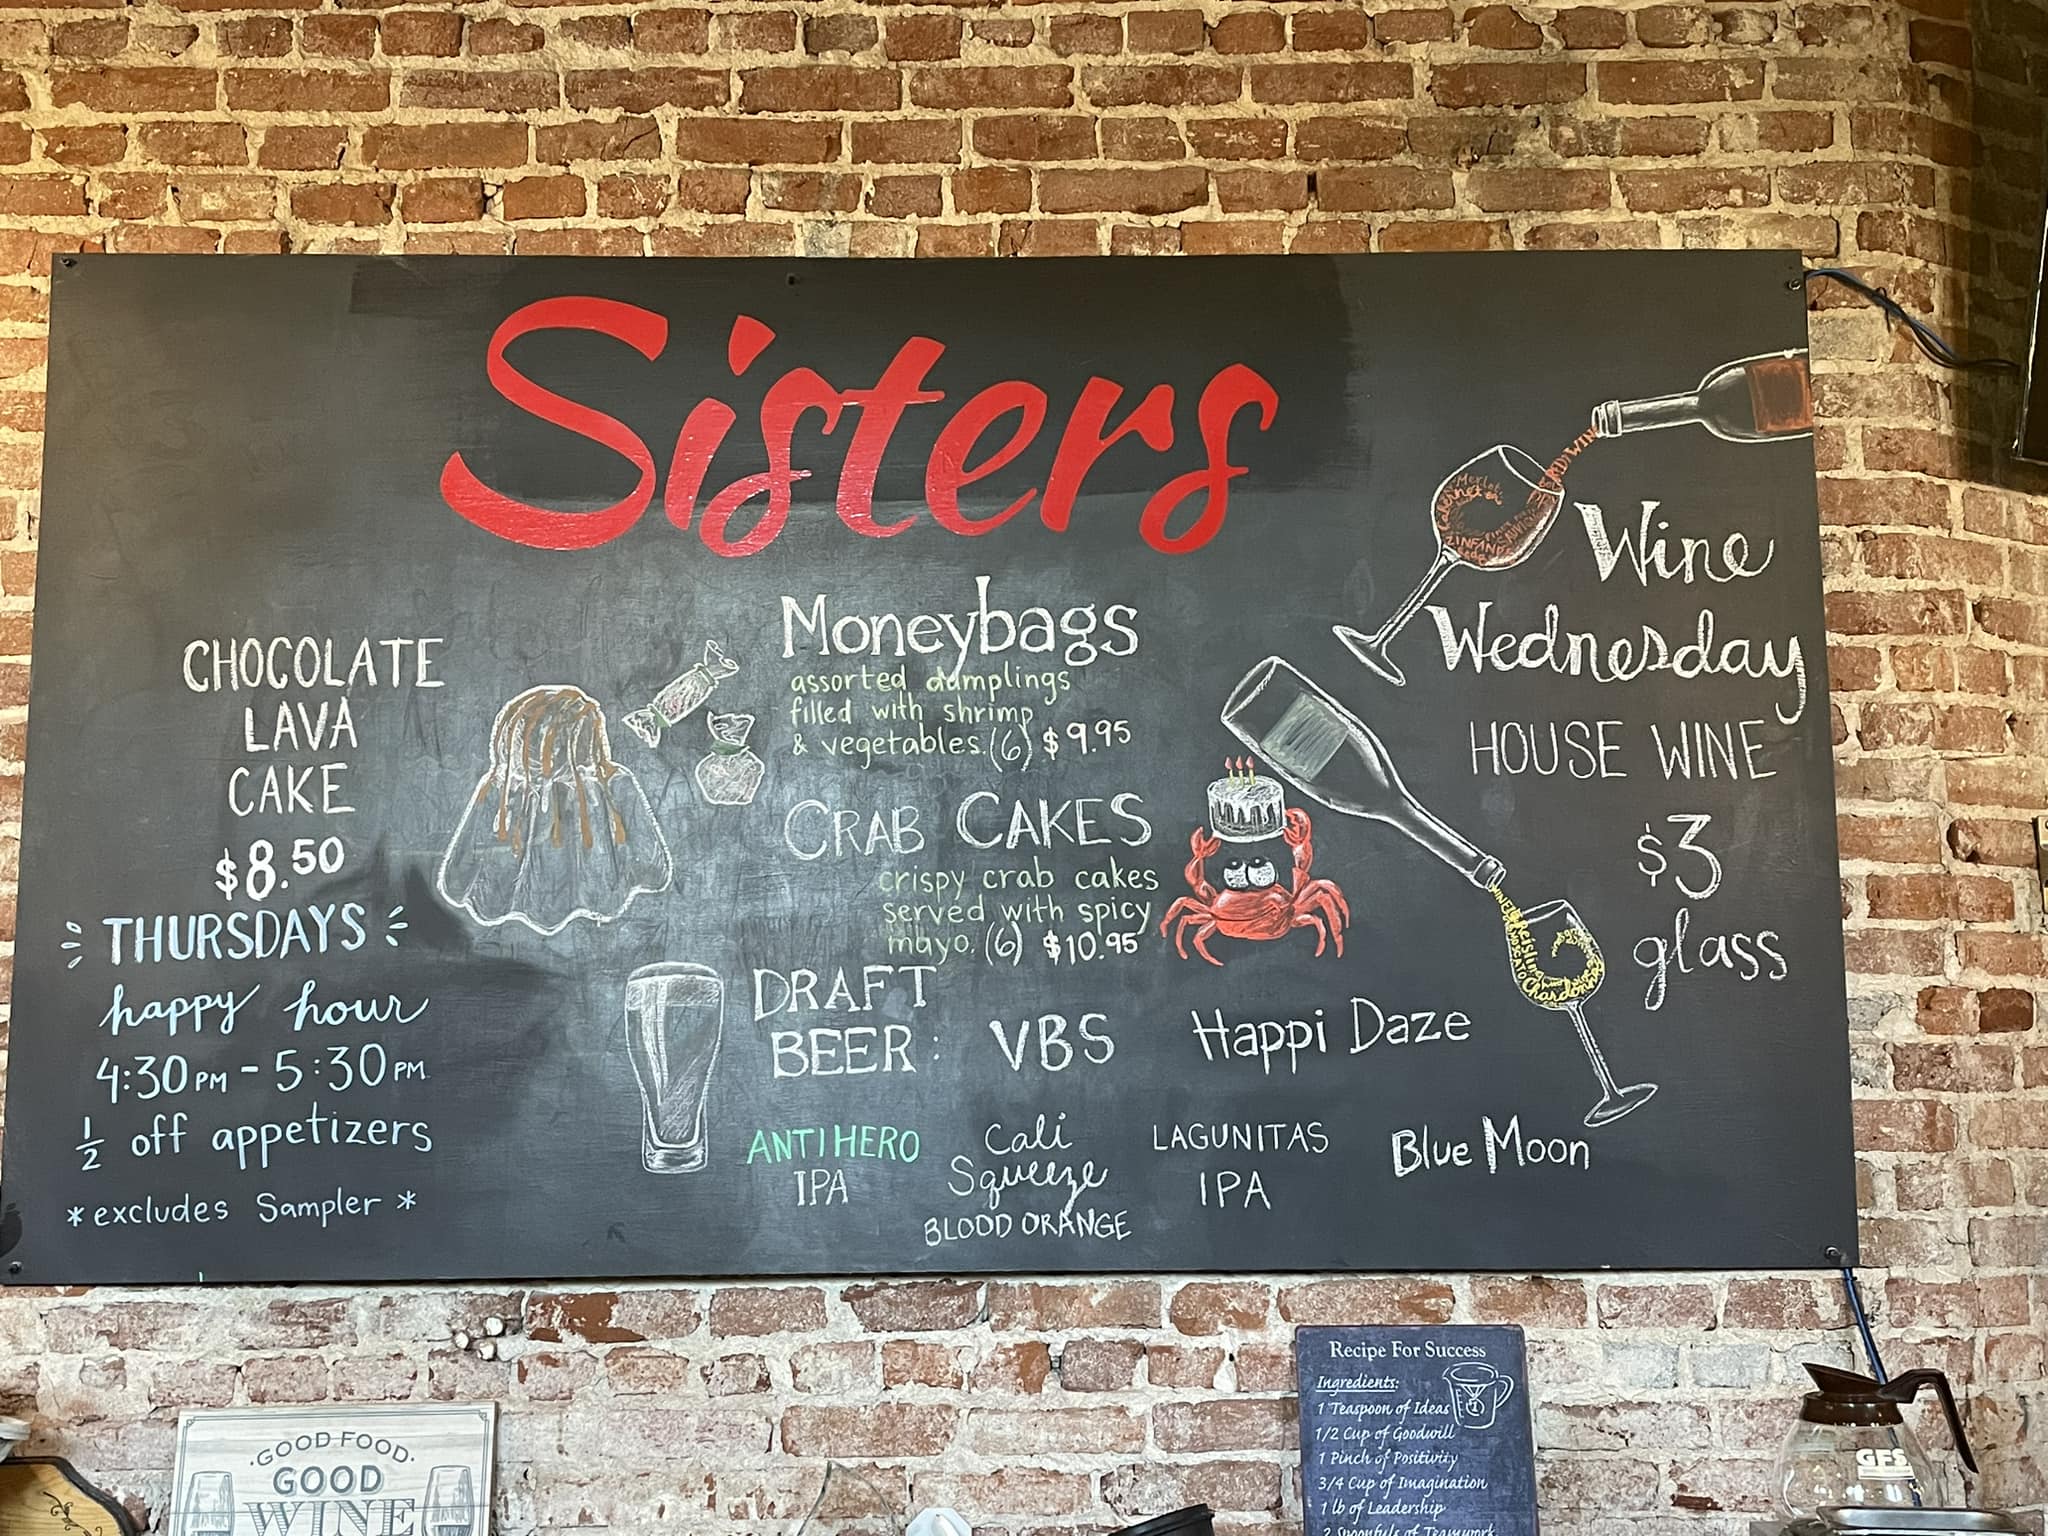 Sisters
CHOCOLATE
LAVA
CAKE
$8.50
THURSDAYS
happy hour
4:30PM - 5:30PM
1/2 off appetizers
*excludes Sampler*
Moneybags
assorted dumplings
filled with shrimp
& vegetables. (6) $9.95
CRAB CAKES
crispy crab cakes
served with spicy
mayo. (6) $10.95
DRAFT
BEER:
VBS
Happi Daze
ANTIHERO
IPA
Cali
Squeeze
BLOOD ORANGE
LAGUNITAS
IPA
Blue Moon
Wine
Wednesday
HOUSE WINE
$3
glass
Merlot
Cabernet
WINE
Reisling
MOSCATO
Chardonnay
·GOOD FOOD·
GOOD
WINE
Recipe For Success
Ingredients:
1 Teaspoon of Ideas
1/2 Cup of Goodwill
1 Pinch of Positivity
3/4 Cup of Imagination
1 lb of Leadership
2 Spoonfuls of Teamwork
1
GFS